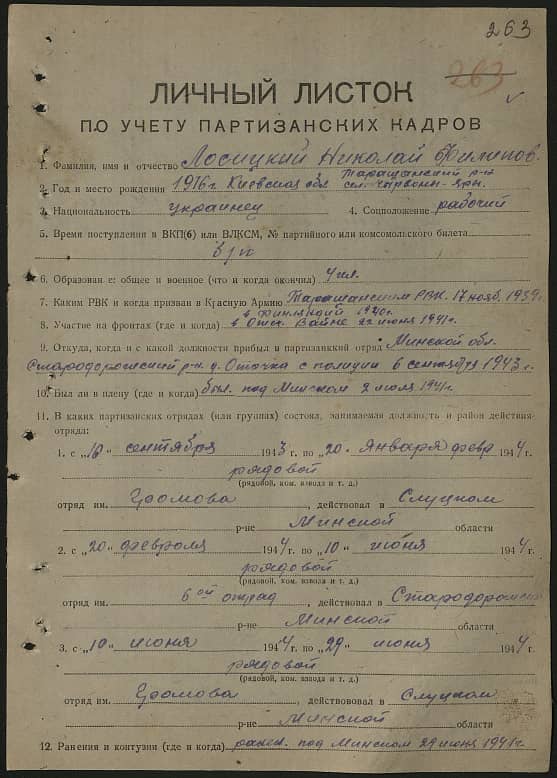 263
263
ЛИЧНЫЙ ЛИСТОК
ПО УЧЕТУ ПАРТИЗАНСКИХ КАДРОВ
1. Фамилия, имя и отчество Лосицкий Николай Филипов.
Таращанский р-н
2. Год и место рождения 1916г. Киевская обл
3. Национальность украинец 4. Соцположение рабочий
5. Время поступления в ВКП(б) или ВЛКСМ, № партийного или комсомольского билета
б/п
6. Образован с: общее и военное (что и когда окончил) 4 кл.
7. Каким РВК и когда призван в Красную Армию Таращанским РВК. 17 нояб. 1939г.
в Финляндий 1940г.
8. Участие на фронтах (где и когда) в Отеч. Вайне 22 июня 1941г.
9. Откуда, когда и с какой должности прибыл в партизанский отряд Минской обл.
Стародорожский р-н д. Оточка с полиции 6 сентября 1943г.
10. Был ли в плену (где и когда) был. под Минском 2 июля 1941г.
11. В каких партизанских отрядах (или группах) состоял, занимаемая должность и район действия
отряда:
1. с „10" сентября 1943 г. по „20" Января февр 1944 г.
рядовой
(рядовой, ком. взвода и т. д.)
отряд им. Громова, действовал в Слуцком
р-не Минской области
2. с „20" февраля 1944 г. по „10" июня 1944 г.
рядовой
(рядовой, ком. взвода и т. д.)
отряд им. 6ой отряд, действовал в Стародорожск
р-не Минской области
3. с „10" июня 1944 г. по „29" июня 1944 г.
рядовой
(рядовой, ком. взвода и т. д.)
отряд им. Громова, действовал в Слуцком
р-не Минской области
12. Ранения и контузии (где и когда) ранен. под Минском 29 июня 1941г.